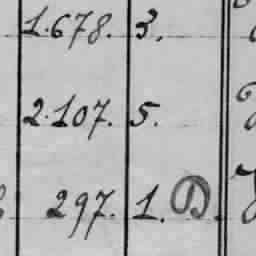 1.678. 3.
2.107. 5.
297. 1. D.